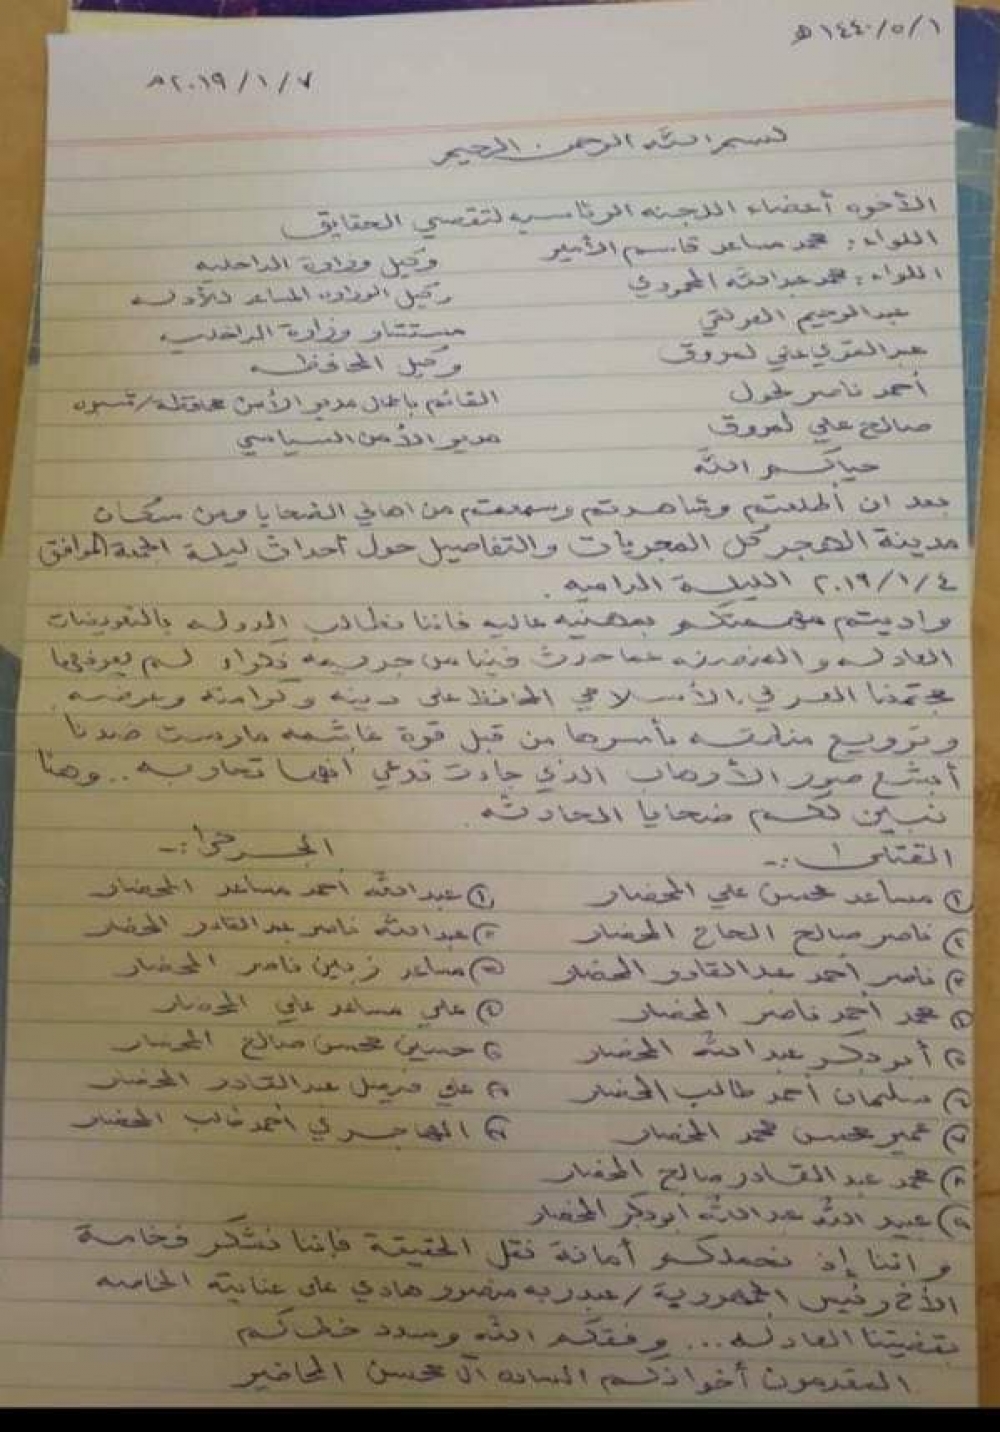 ١٤٤٠/٥/١ هـ
٢٠١٩/١/٧م
بسم الله الرحمن الرحيم
الأخوه أعضاء اللجنه الرئاسيه لتقصي الحقايق
اللواء: محمد مساعد قاسم الأمير وكيل وزارة الداخليه
اللواء: محمد عبدالله المحمودي وكيل الوزاره المساعد للأدله
عبدالرحيم العولقي مستشار وزارة الداخليه
عبدالقوي علي لمروق وكيل المحافظه
أحمد ناصر لحول القائم باعمال مدير الأمن محافظة/شبوه
صالح علي لمروق مدير الأمن السياسي
حياكم الله
بعد ان أطلعتم وشاهدتم وسمعتم من اهالي الضحايا ومن سكان
مدينة الهجر كل المجريات والتفاصيل حول أحداث ليلة الجمعة الموافق
٢٠١٩/١/٤ الليلة الداميه.
واديتم مهمتكم بمهنيه عاليه فاننا نطالب الدوله بالتعويضات
العادله والمنصفه عما حدث فينا من جريمه نكراء لم يعرفها
مجتمعنا العربي الأسلامي المحافظ على دينه وكرامته وعرضه.
وترويع منطقه بأسرها من قبل قوة غاشمه مارست ضدنا
أبشع صور الأرهاب الذي جاءت تدعي أنها تحاربه.. وهنا
نبين لكم ضحايا الحادثه.
القتلى:- الجرحى:-
١) مساعد محسن علي المحضار ١) عبدالله احمد مساعد المحضار
٢) ناصر صالح الحاج المحضار ٢) عبدالله ناصر عبدالقادر المحضار
٣) ناصر احمد عبدالقادر المحضار ٣) مساعد زبين ناصر المحضار
٤) محمد احمد ناصر المحضار ٤) علي مساعد علي المحضار
٥) أبوبكر عبدالله المحضار ٥) حسين محسن صالح المحضار
٦) سليمان أحمد طالب المحضار ٦) علي عبدالقادر المحضار
٧) عمير محسن محمد المحضار ٧) احمد طالب المحضار
٨) محمد عبدالقادر صالح المحضار
٩) عبيد الله عبدالله ابوبكر المحضار
واننا إذ نحملكم أمانة نقل الحقيقة فإننا نشكر فخامة
الأخ رئيس الجمهورية/عبدربه منصور هادي على عنايته الخاصه
بقضيتنا العادله... وفقكم الله وسدد خطاكم
المقدمون أخوانكم الساده آل محسن المحاضير